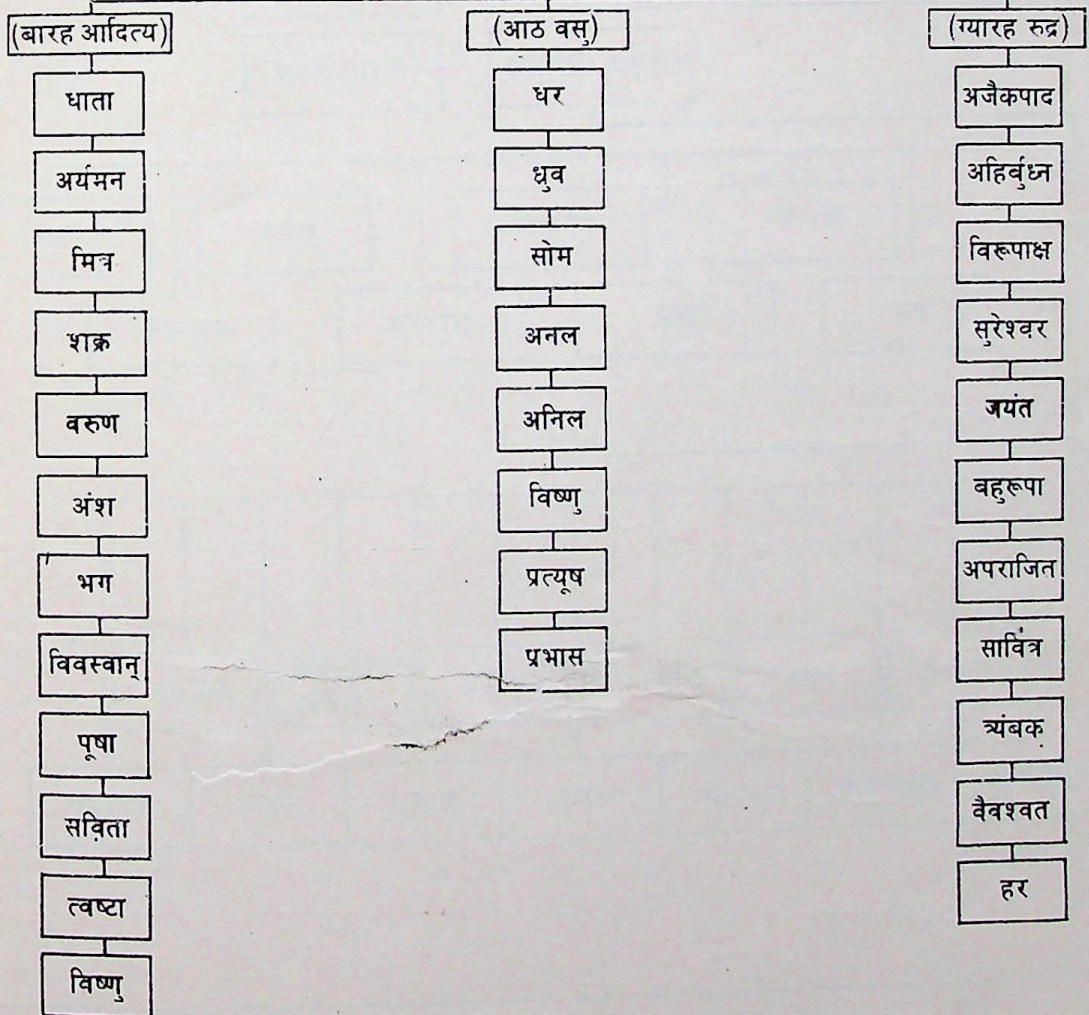 (बारह आदित्य)
धाता
अर्यमन
मित्र
शक्र
वरुण
अंश
भग
विवस्वान्
पूषा
सविता
त्वष्टा
विष्णु
(आठ वसु)
धर
ध्रुव
सोम
अनल
अनिल
विष्णु
प्रत्यूष
प्रभास
(ग्यारह रुद्र)
अजैकपाद
अहिर्बुध्न
विरूपाक्ष
सुरेश्वर
जयंत
बहुरूपा
अपराजित
सावित्र
त्र्यंबक
वैवश्वत
हर